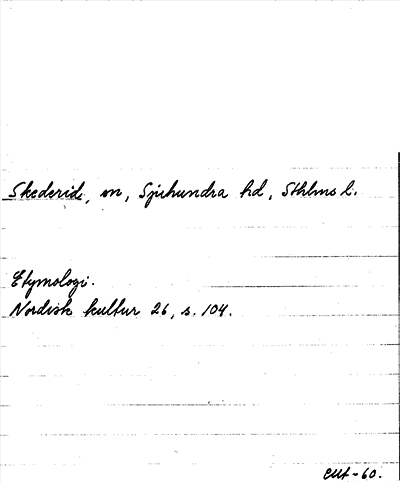 Skederid, sn, Sjuhundra hd, Sthlms l.
Etymologi.
Nordisk kultur 26, s. 104.
-60.